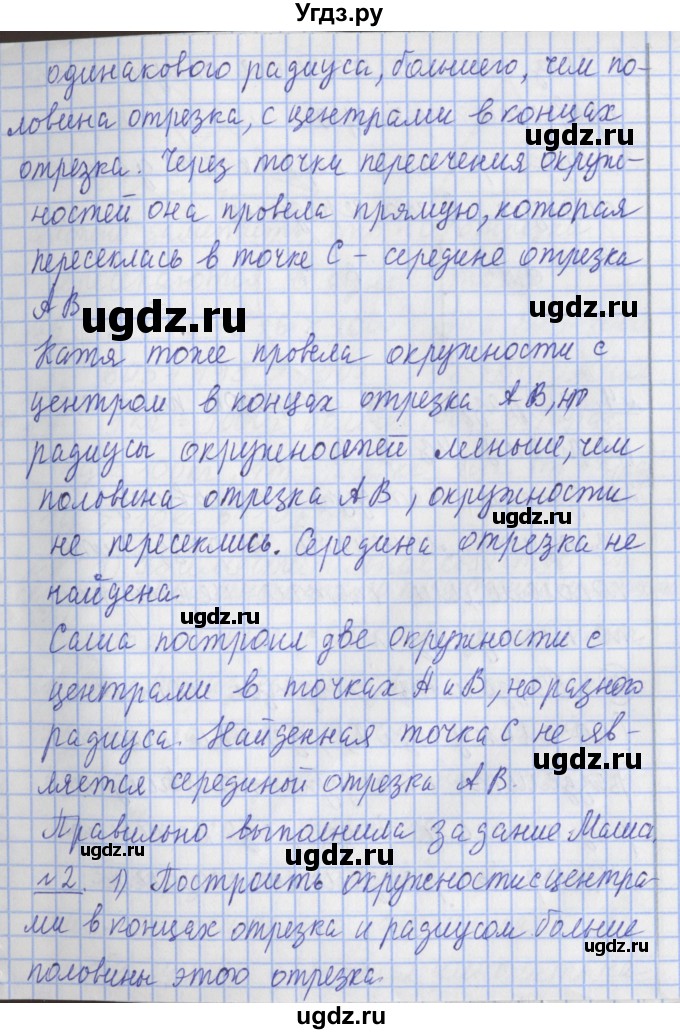 Угдз.ру
одинакового радиуса, большего, чем по-
ловина отрезка, с центрами в концах
ugdz.ru
отрезка. Через точки пересечения окруж-
ugdz.ru
ностей она провела прямую, которая
пересеклась в точке С – середине отрезка
АВ.
ugdz.ru
ugdz.ru
Катя тоже провела окружности с
центром в концах отрезка АВ, но
радиусы окружностей меньше, чем
половина отрезка АВ, окружности
ugdz.ru
не пересеклись. Середина отрезка не
найдена.
ugdz.ru
Саша построил две окружности с
центрами в точках А и В, но разного
радиуса. Найденная точка С не яв-
ugdz.ru
ляется серединой отрезка АВ.
Правильно выполнила задание Маша.
ugdz.ru
№2. 1) Построить окружности с центра-
ми в концах отрезка и радиусом больше
ugdz.ru
половины этого отрезка.
ugdz.ru